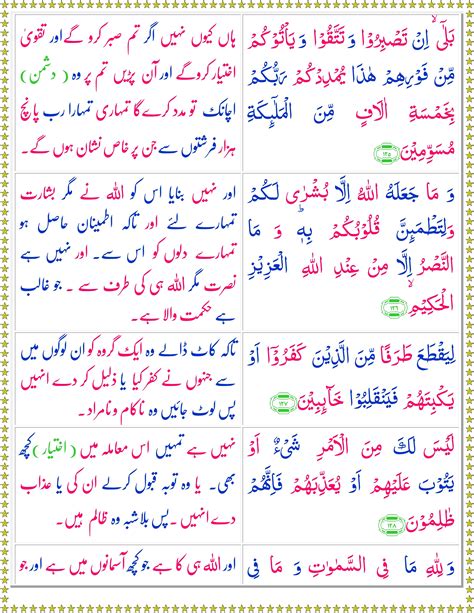 بَلٰٓىۙ اِنْ تَصْبِرُوْا وَ تَتَّقُوْا وَ يَاْتُوْكُمْ
مِّنْ فَوْرِهِمْ هٰذَا يُمْدِدْكُمْ رَبُّكُمْ
بِخَمْسَةِ اٰلَافٍ مِّنَ الْمَلٰٓئِكَةِ
مُسَوِّمِيْنَ ﴿۱۲۵﴾
ہاں کیوں نہیں اگر تم صبر کرو گے اور تقویٰ
اختیار کروگے اور آن پڑیں تم پر وہ (دشمن)
اچانک تو مدد کرے گا تمہاری تمہارا رب پانچ
ہزار فرشتوں سے جن پر خاص نشان ہوں گے۔
وَ مَا جَعَلَهُ اللّٰهُ اِلَّا بُشْرٰى لَكُمْ
وَلِتَطْمَئِنَّ قُلُوْبُكُمْ بِهٖؕ وَ مَا
النَّصْرُ اِلَّا مِنْ عِنْدِ اللّٰهِ الْعَزِيْزِ
الْحَكِيْمِۙ ﴿۱۲۶﴾
اور نہیں بنایا اس کو اللہ نے مگر بشارت
تمہارے لئے اور تاکہ اطمینان حاصل ہو
تمہارے دلوں کو اس سے۔ اور نہیں ہے
نصرت مگر اللہ ہی کی طرف سے ۔ جو غالب
ہے حکمت والا ہے۔
لِيَقْطَعَ طَرَفًا مِّنَ الَّذِيْنَ كَفَرُوْۤا اَوْ
يَكْبِتَهُمْ فَيَنْقَلِبُوْا خَآئِبِيْنَ ﴿۱۲۷﴾
تاکہ کاٹ ڈالے وہ ایک گروہ کو ان لوگوں میں
سے جنہوں نے کفر کیا یا ذلیل کر دے انہیں
پس لوٹ جائیں وہ ناکام و نامراد۔
لَيْسَ لَكَ مِنَ الْاَمْرِ شَىْءٌ اَوْ
يَتُوْبَ عَلَيْهِمْ اَوْ يُعَذِّبَهُمْ فَاِنَّهُمْ
ظٰلِمُوْنَ ﴿۱۲۸﴾
نہیں ہے تمہیں اس معاملہ میں (اختیار) کچھ
بھی۔ یا وہ توبہ قبول کرلے ان کی یا عذاب
دے انہیں ۔پس بلاشبہ وہ ظالم ہیں۔
وَ لِلّٰهِ مَا فِى السَّمٰوٰتِ وَ مَا فِى
اور اللہ ہی کا ہے جو کچھ آسمانوں میں ہے اور جو